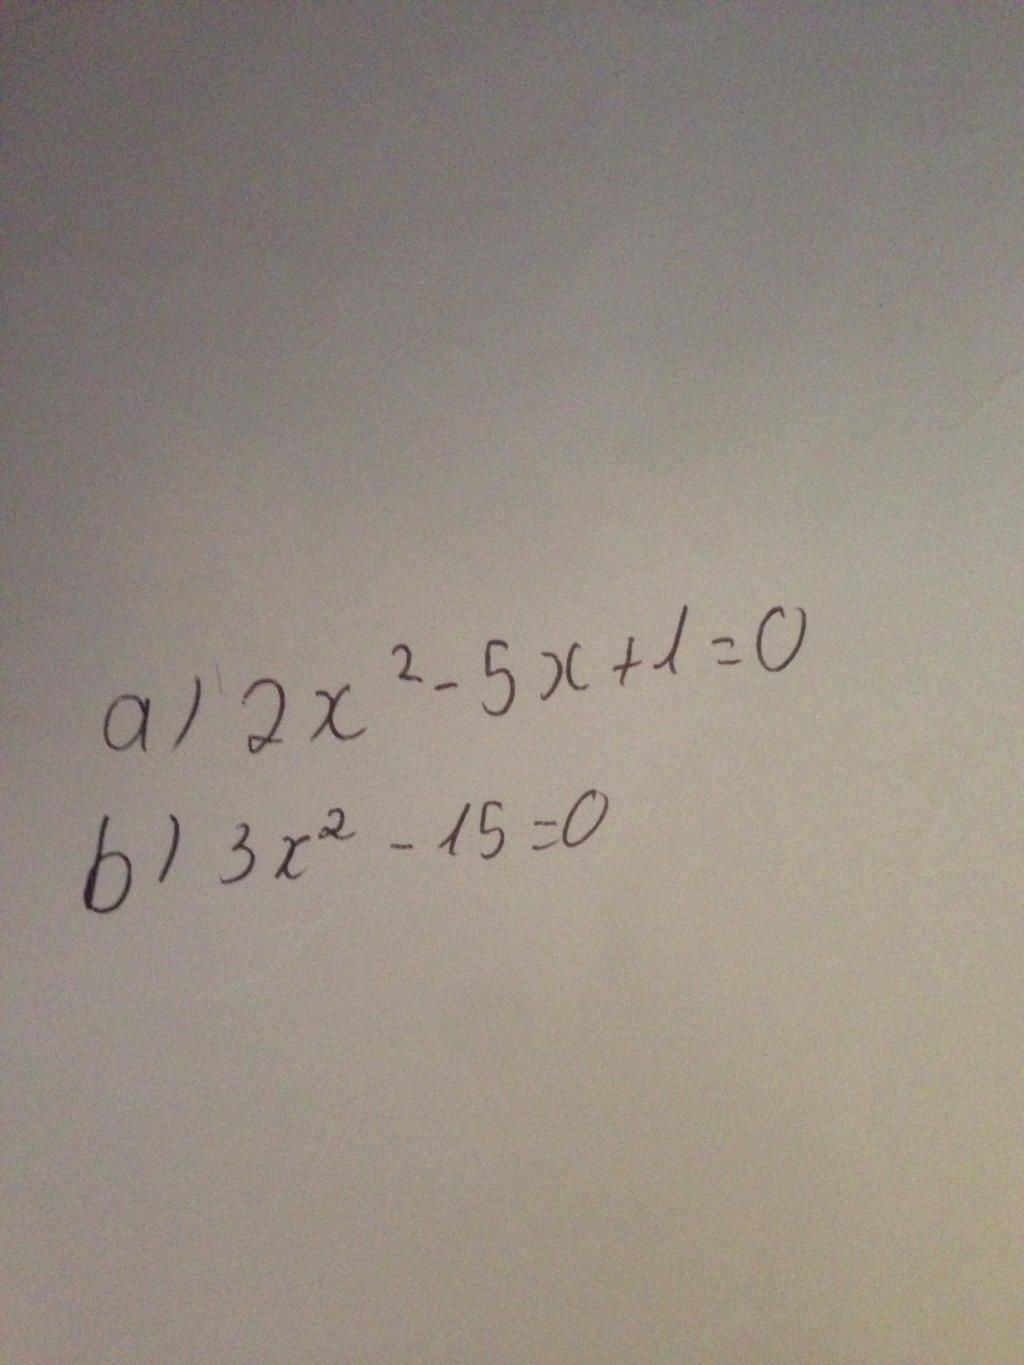 a) 2x² - 5x + 1 = 0
b) 3x² - 15 = 0